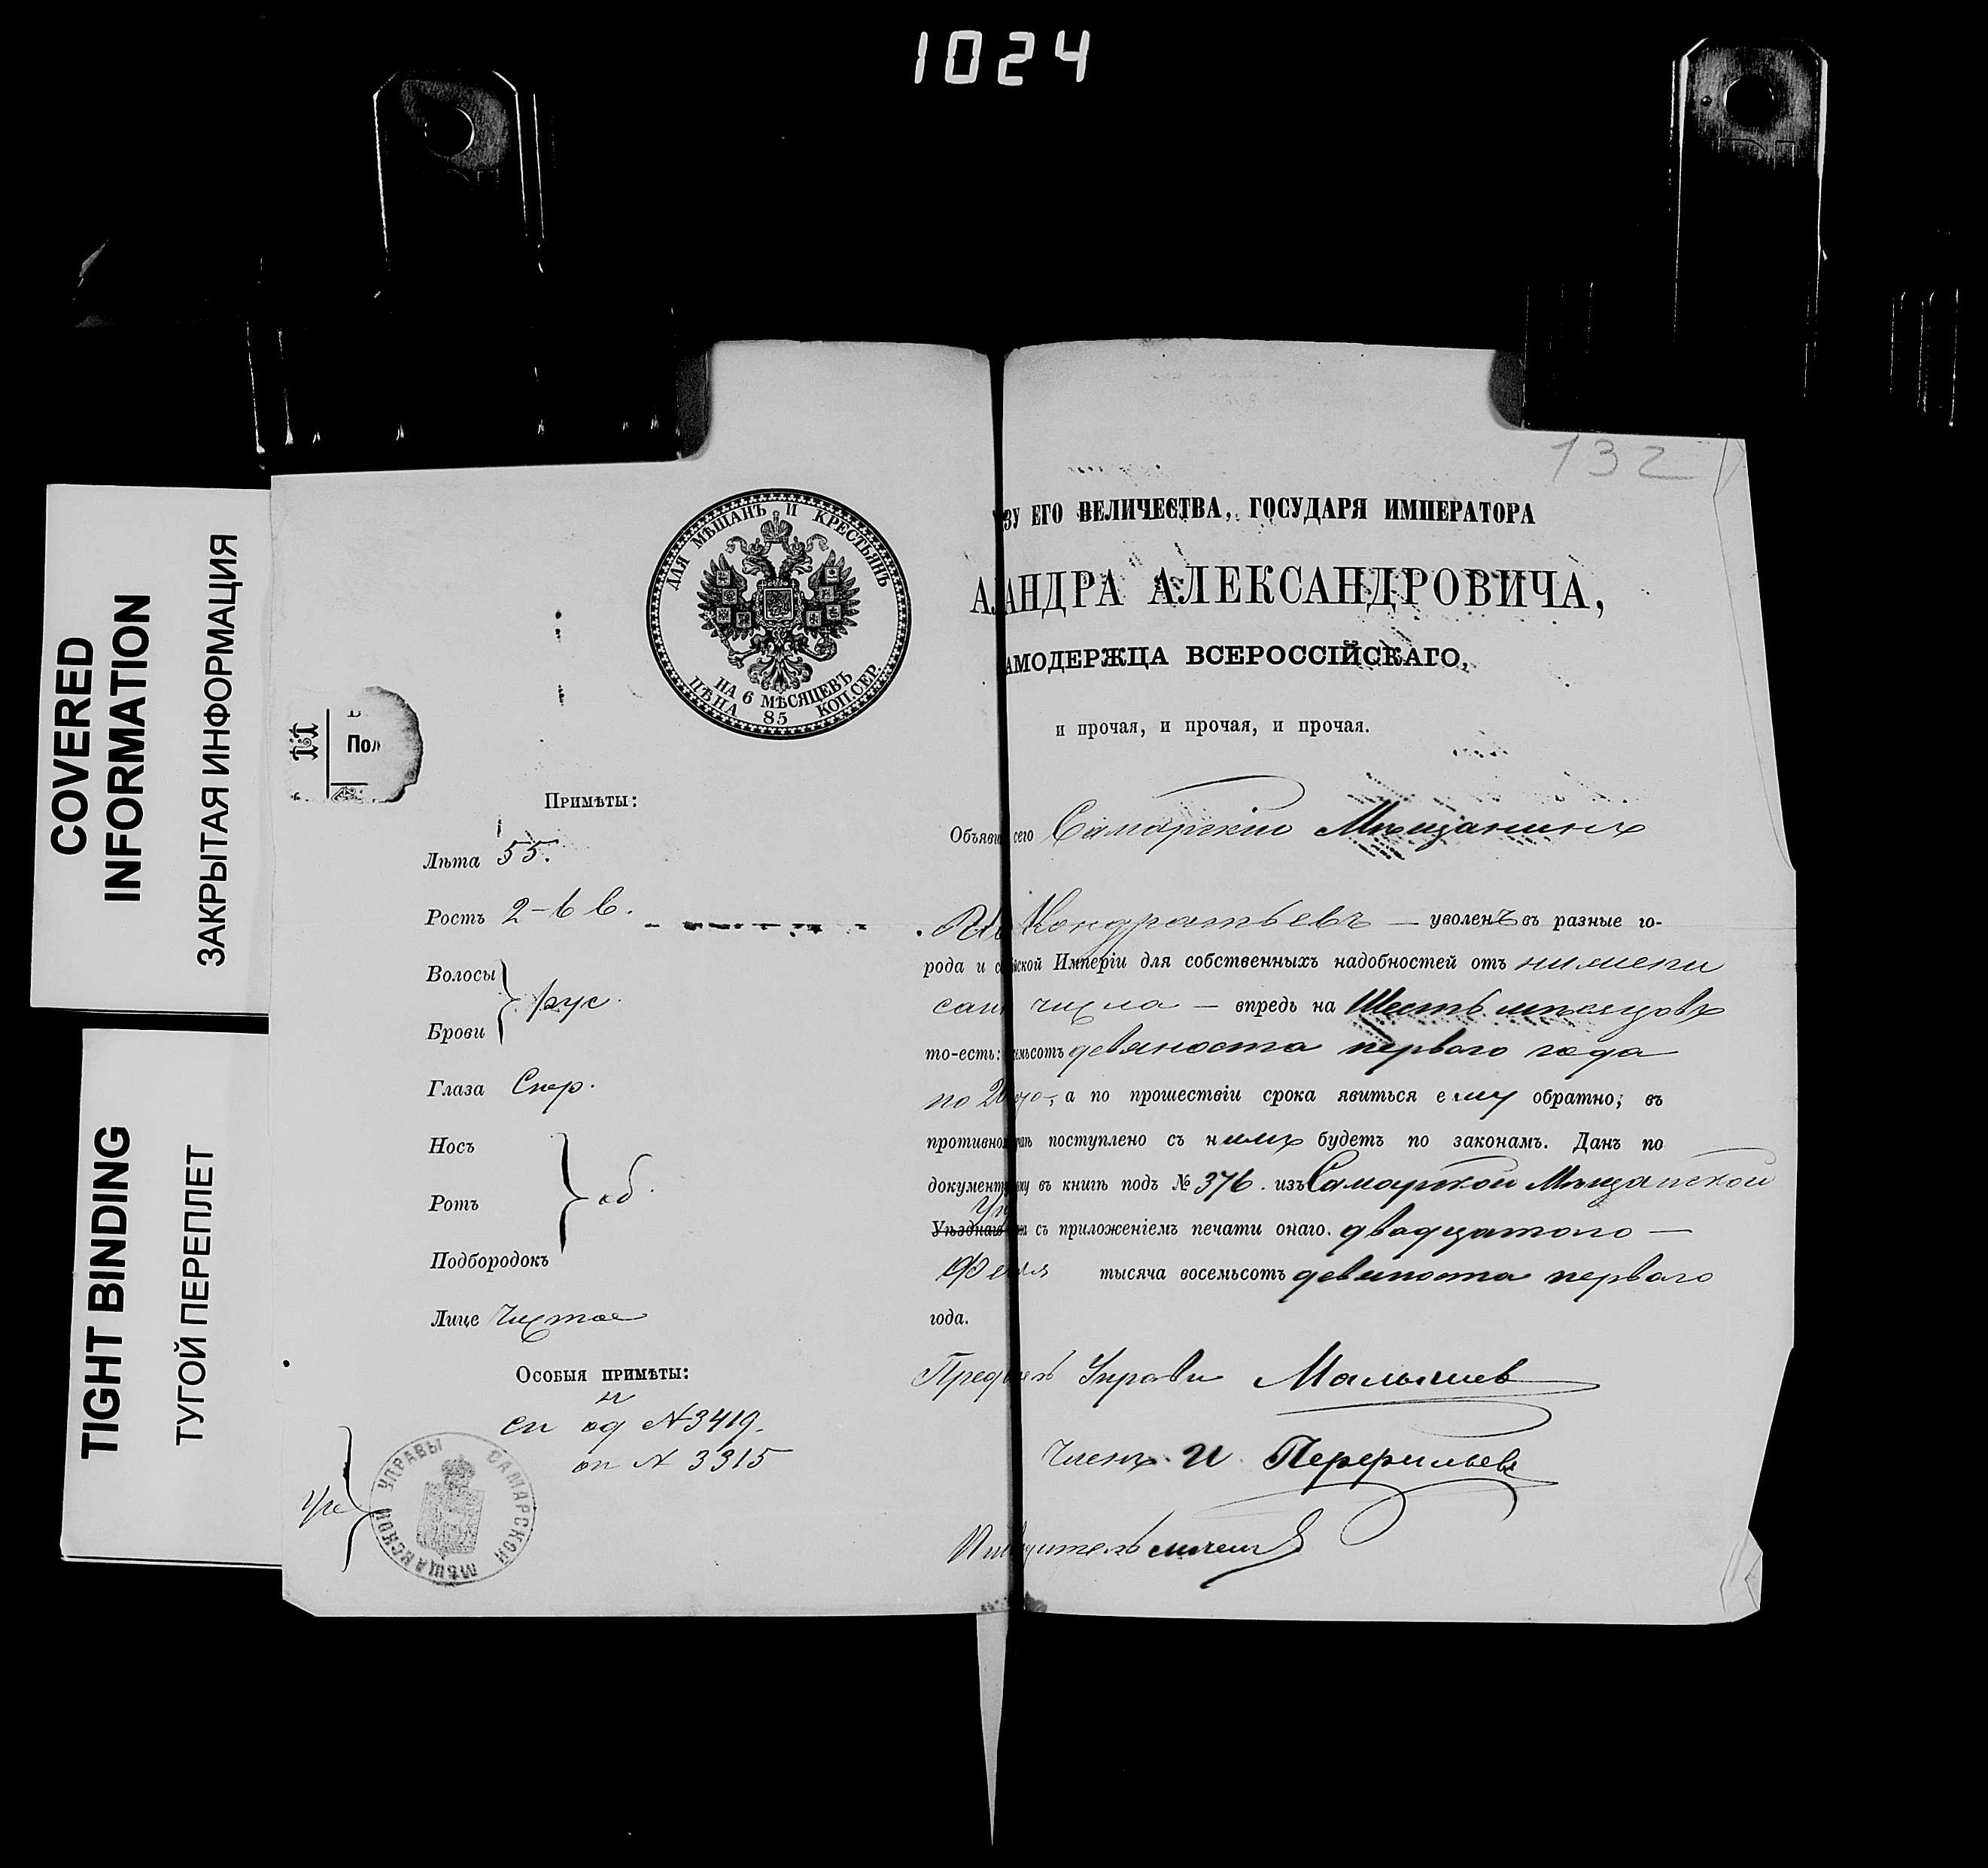 1024
COVERED
INFORMATION
ЗАКРЫТАЯ ИНФОРМАЦИЯ
TIGHT BINDING
ТУГОЙ ПЕРЕПЛЕТ
ДЛЯ МѢЩАНЪ И КРЕСТЬЯНЪ
НА 6 МѢСЯЦЕВЪ
ЦѢНА 85 КОП.СЕР.
Пол
Примѣты:
Лѣта 55.
Ростъ 2-6 в.
Волосы
рус.
Брови
Глаза Сѣр.
Носъ
Ротъ
об.
Подбородокъ
Лице Чистое
Особыя примѣты:
№ 3419.
№ 3315
САМАРСКОЙ МѢЩАНСКОЙ УПРАВЫ
132
ЗУ ЕГО ВЕЛИЧЕСТВА, ГОСУДАРЯ ИМПЕРАТОРА
АНДРА АЛЕКСАНДРОВИЧА,
АМОДЕРЖЦА ВСЕРОССІЙСКАГО,
и прочая, и прочая, и прочая.
Объяви сего Самарскій Мѣщанинъ
Кондратьевъ — уволенъ въ разные го-
рода и с йской Имперіи для собственныхъ надобностей отъ нижепи
сан числа — впредь на Шесть мѣсяцовъ
то-есть: емьсотъ девяноста перваго года
по 20 а по прошествіи срока явиться ему обратно; въ
противно чаѣ поступлено съ нимъ будетъ по законамъ. Данъ по
документ ку въ книгѣ подъ № 376. изъ Самарской Мѣщанской
Уѣзднаго съ приложеніемъ печати онаго. двадцатого —
тысяча восемьсотъ девяноста перваго
года.
Предс ель Управы Малышев
Членъ И Перфильевъ